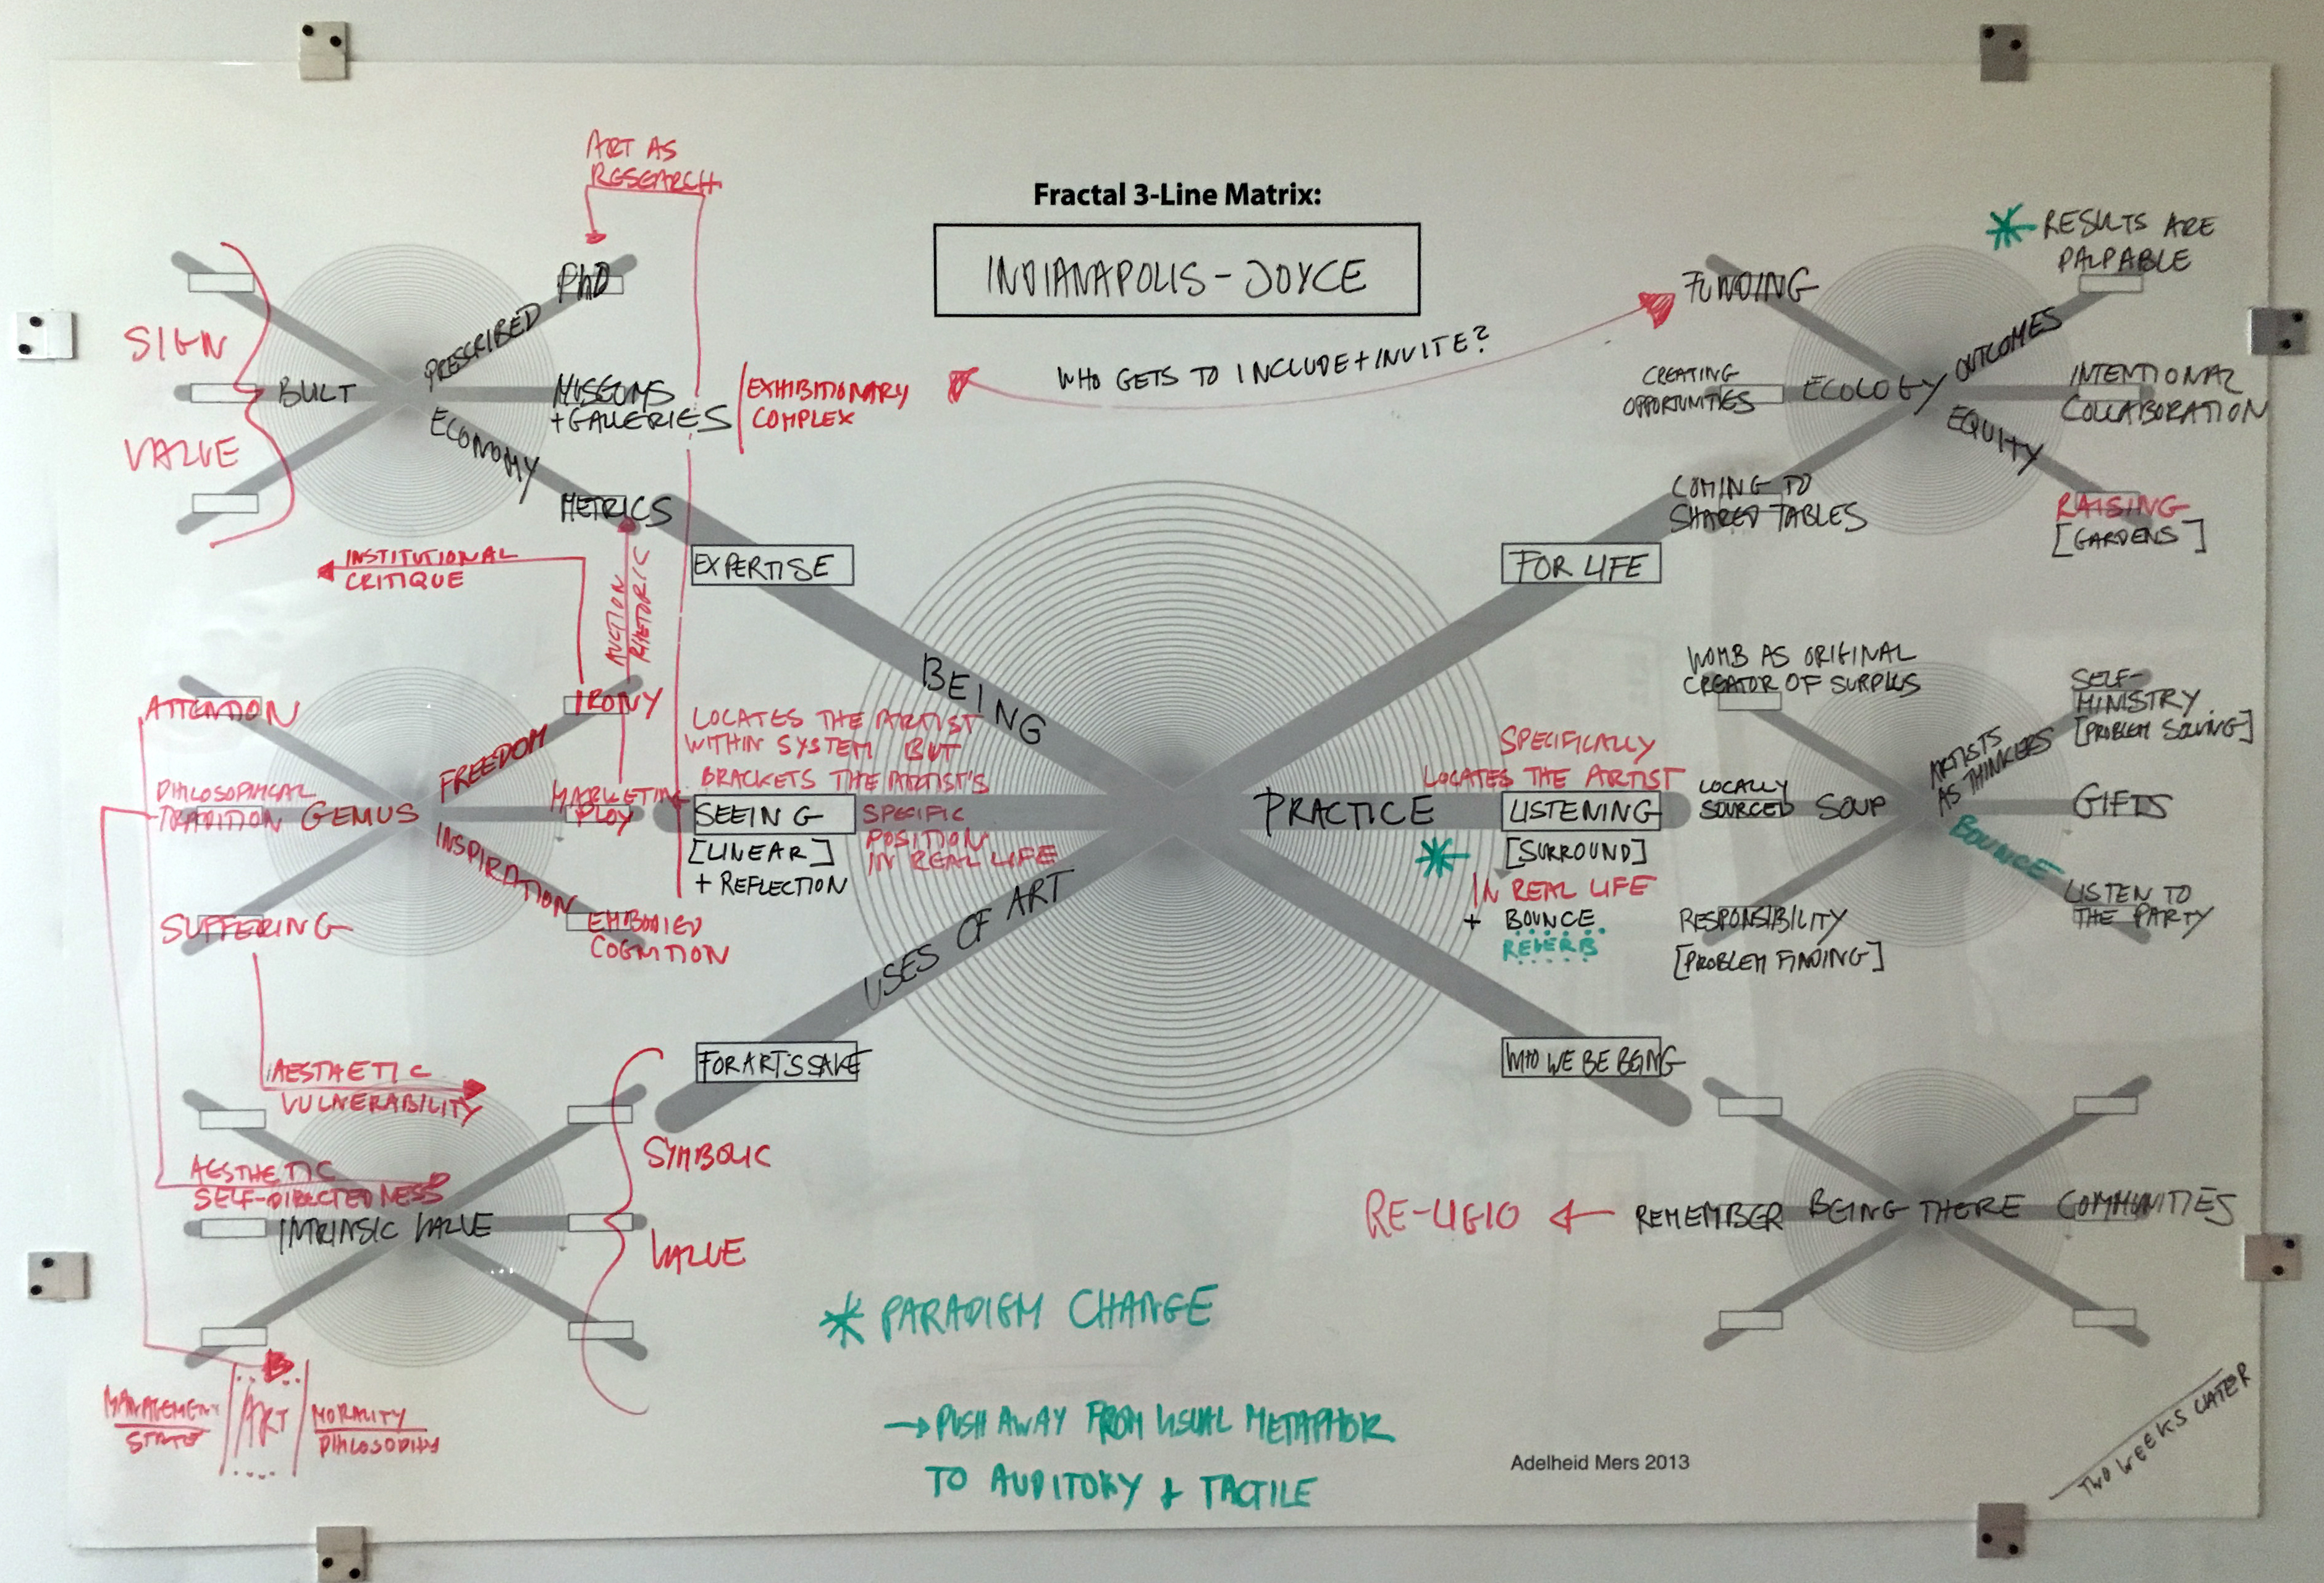 Fractal 3-Line Matrix:
INDIANAPOLIS - JOYCE
ART AS
RESEARCH
PHD
PRESCRIBED
SIGN
VALUE
BUILT
MUSEUMS
+ GALLERIES
EXHIBITIONARY
COMPLEX
ECONOMY
METRICS
WHO GETS TO INCLUDE + INVITE?
FUNDING
* RESULTS ARE
PALPABLE
OUTCOMES
CREATING
OPPORTUNITIES
ECOLOGY
INTENTIONAL
COLLABORATION
EQUITY
COMING TO
SHARED TABLES
RAISING
[GARDENS]
INSTITUTIONAL
CRITIQUE
AUCTION
RHETORIC
EXPERTISE
FOR LIFE
BEING
ATTENTION
IRONY
FREEDOM
PHILOSOPHICAL
TRADITION
GENIUS
MARKETING
PLOY
INSPIRATION
SUFFERING
EMBODIED
COGNITION
LOCATES THE ARTIST
WITHIN SYSTEM BUT
BRACKETS THE ARTIST'S
SPECIFIC
POSITION
IN REAL LIFE
SEEING
[LINEAR]
+ REFLECTION
PRACTICE
SPECIFICALLY
LOCATES THE ARTIST
LISTENING
* [SURROUND]
IN REAL LIFE
+ BOUNCE
REVERB
WOMB AS ORIGINAL
CREATOR OF SURPLUS
LOCALLY
SOURCED
SOUP
ARTISTS
AS THINKERS
SELF-
MINISTRY
[PROBLEM SOLVING]
GIFTS
BOUNCE
LISTEN TO
THE PARTY
RESPONSIBILITY
[PROBLEM FINDING]
USES OF ART
FOR ART'S SAKE
WHO WE BE BEING
AESTHETIC
VULNERABILITY
AESTHETIC
SELF-DIRECTEDNESS
INTRINSIC VALUE
SYMBOLIC
VALUE
RE-LIGIO
REMEMBER
BEING THERE
COMMUNITIES
* PARADIGM CHANGE
→ PUSH AWAY FROM VISUAL METAPHOR
TO AUDITORY + TACTILE
MANAGEMENT
STATE
ART
MORALITY
PHILOSOPHY
Adelheid Mers 2013
TWO WEEKS LATER